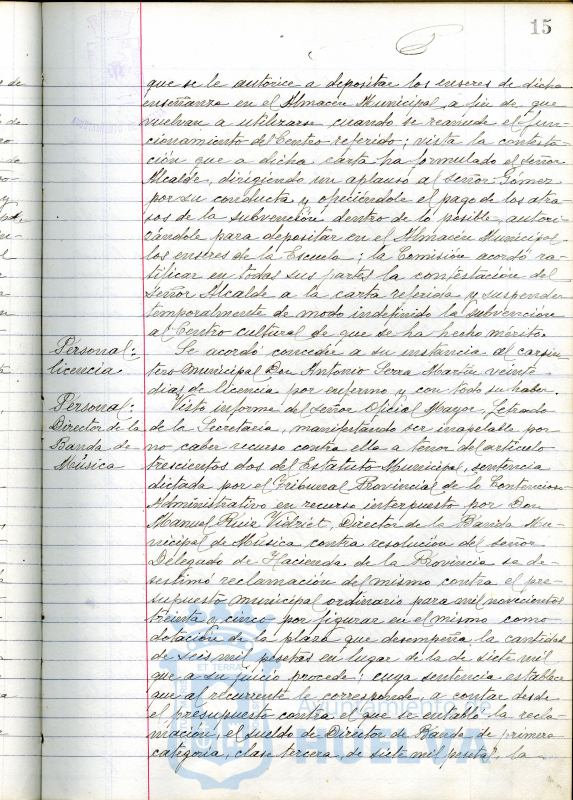 15
que se le autorice a depositar los enseres de dicha
enseñanza en el Almacén Municipal, a fin de que
vuelvan a utilizarse cuando se reanude el fun-
cionamiento del Centro referido; vista la contesta-
ción que a dicha carta ha formulado el señor
Alcalde, dirigiendo un aplauso al señor Gómez
por su conducta y ofreciéndole el pago de los atra-
sos de la subvención dentro de lo posible, autori-
zándole para depositar en el Almacén Municipal
los enseres de la Escuela; la Comisión acordó ra-
tificar en todas sus partes la contestación del
Señor Alcalde a la carta referida y suspender
temporalmente de modo indefinido la subvención
al Centro cultural de que se ha hecho mérito.
Personal:
licencia.
Se acordó conceder a su instancia al carpin-
tero municipal Don Antonio Serra Martín veinte
días de licencia por enfermo y con todo su haber.
Personal:
Director de la
Banda de
Música
Visto informe del señor Oficial Mayor, Letrado
de la Secretaría, manifestando ser inapelable por
no caber recurso contra ella a tenor del artículo
trescientos dos del Estatuto Municipal, sentencia
dictada por el Tribunal Provincial de lo Contencioso
Administrativo en recurso interpuesto por Don
Manuel Ruiz Vidriet, Director de la Banda Mu-
nicipal de Música contra resolución del señor
Delegado de Hacienda de la Provincia se de-
sestimó reclamación del mismo contra el pre-
supuesto municipal ordinario para mil novecientos
treinta y cinco por figurar en el mismo como
dotación de la plaza que desempeña la cantidad
de seis mil pesetas en lugar de la de siete mil
que a su juicio procede; cuya sentencia establece
que al recurrente le corresponde, a contar desde
el presupuesto contra el que se entabló la recla-
mación, el sueldo de Director de Banda de primera
categoría, clase tercera, de siete mil pesetas, la
ET TERRA
Ayuntamiento de
HUELVA